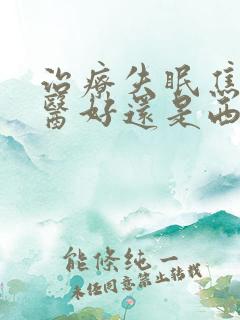 治療失眠焦
醫好還是西
能條純一
未任同意禁止轉載